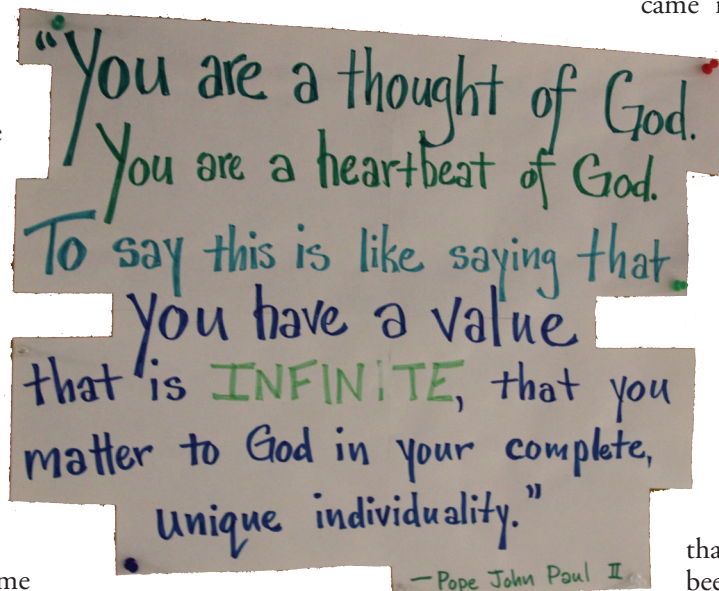 came
"You are a thought of God.
You are a heartbeat of God.
To say this is like saying that
you have a value
that is INFINiTE, that you
matter to God in your complete,
unique individuality."
—Pope John Paul II
tha
me
bee